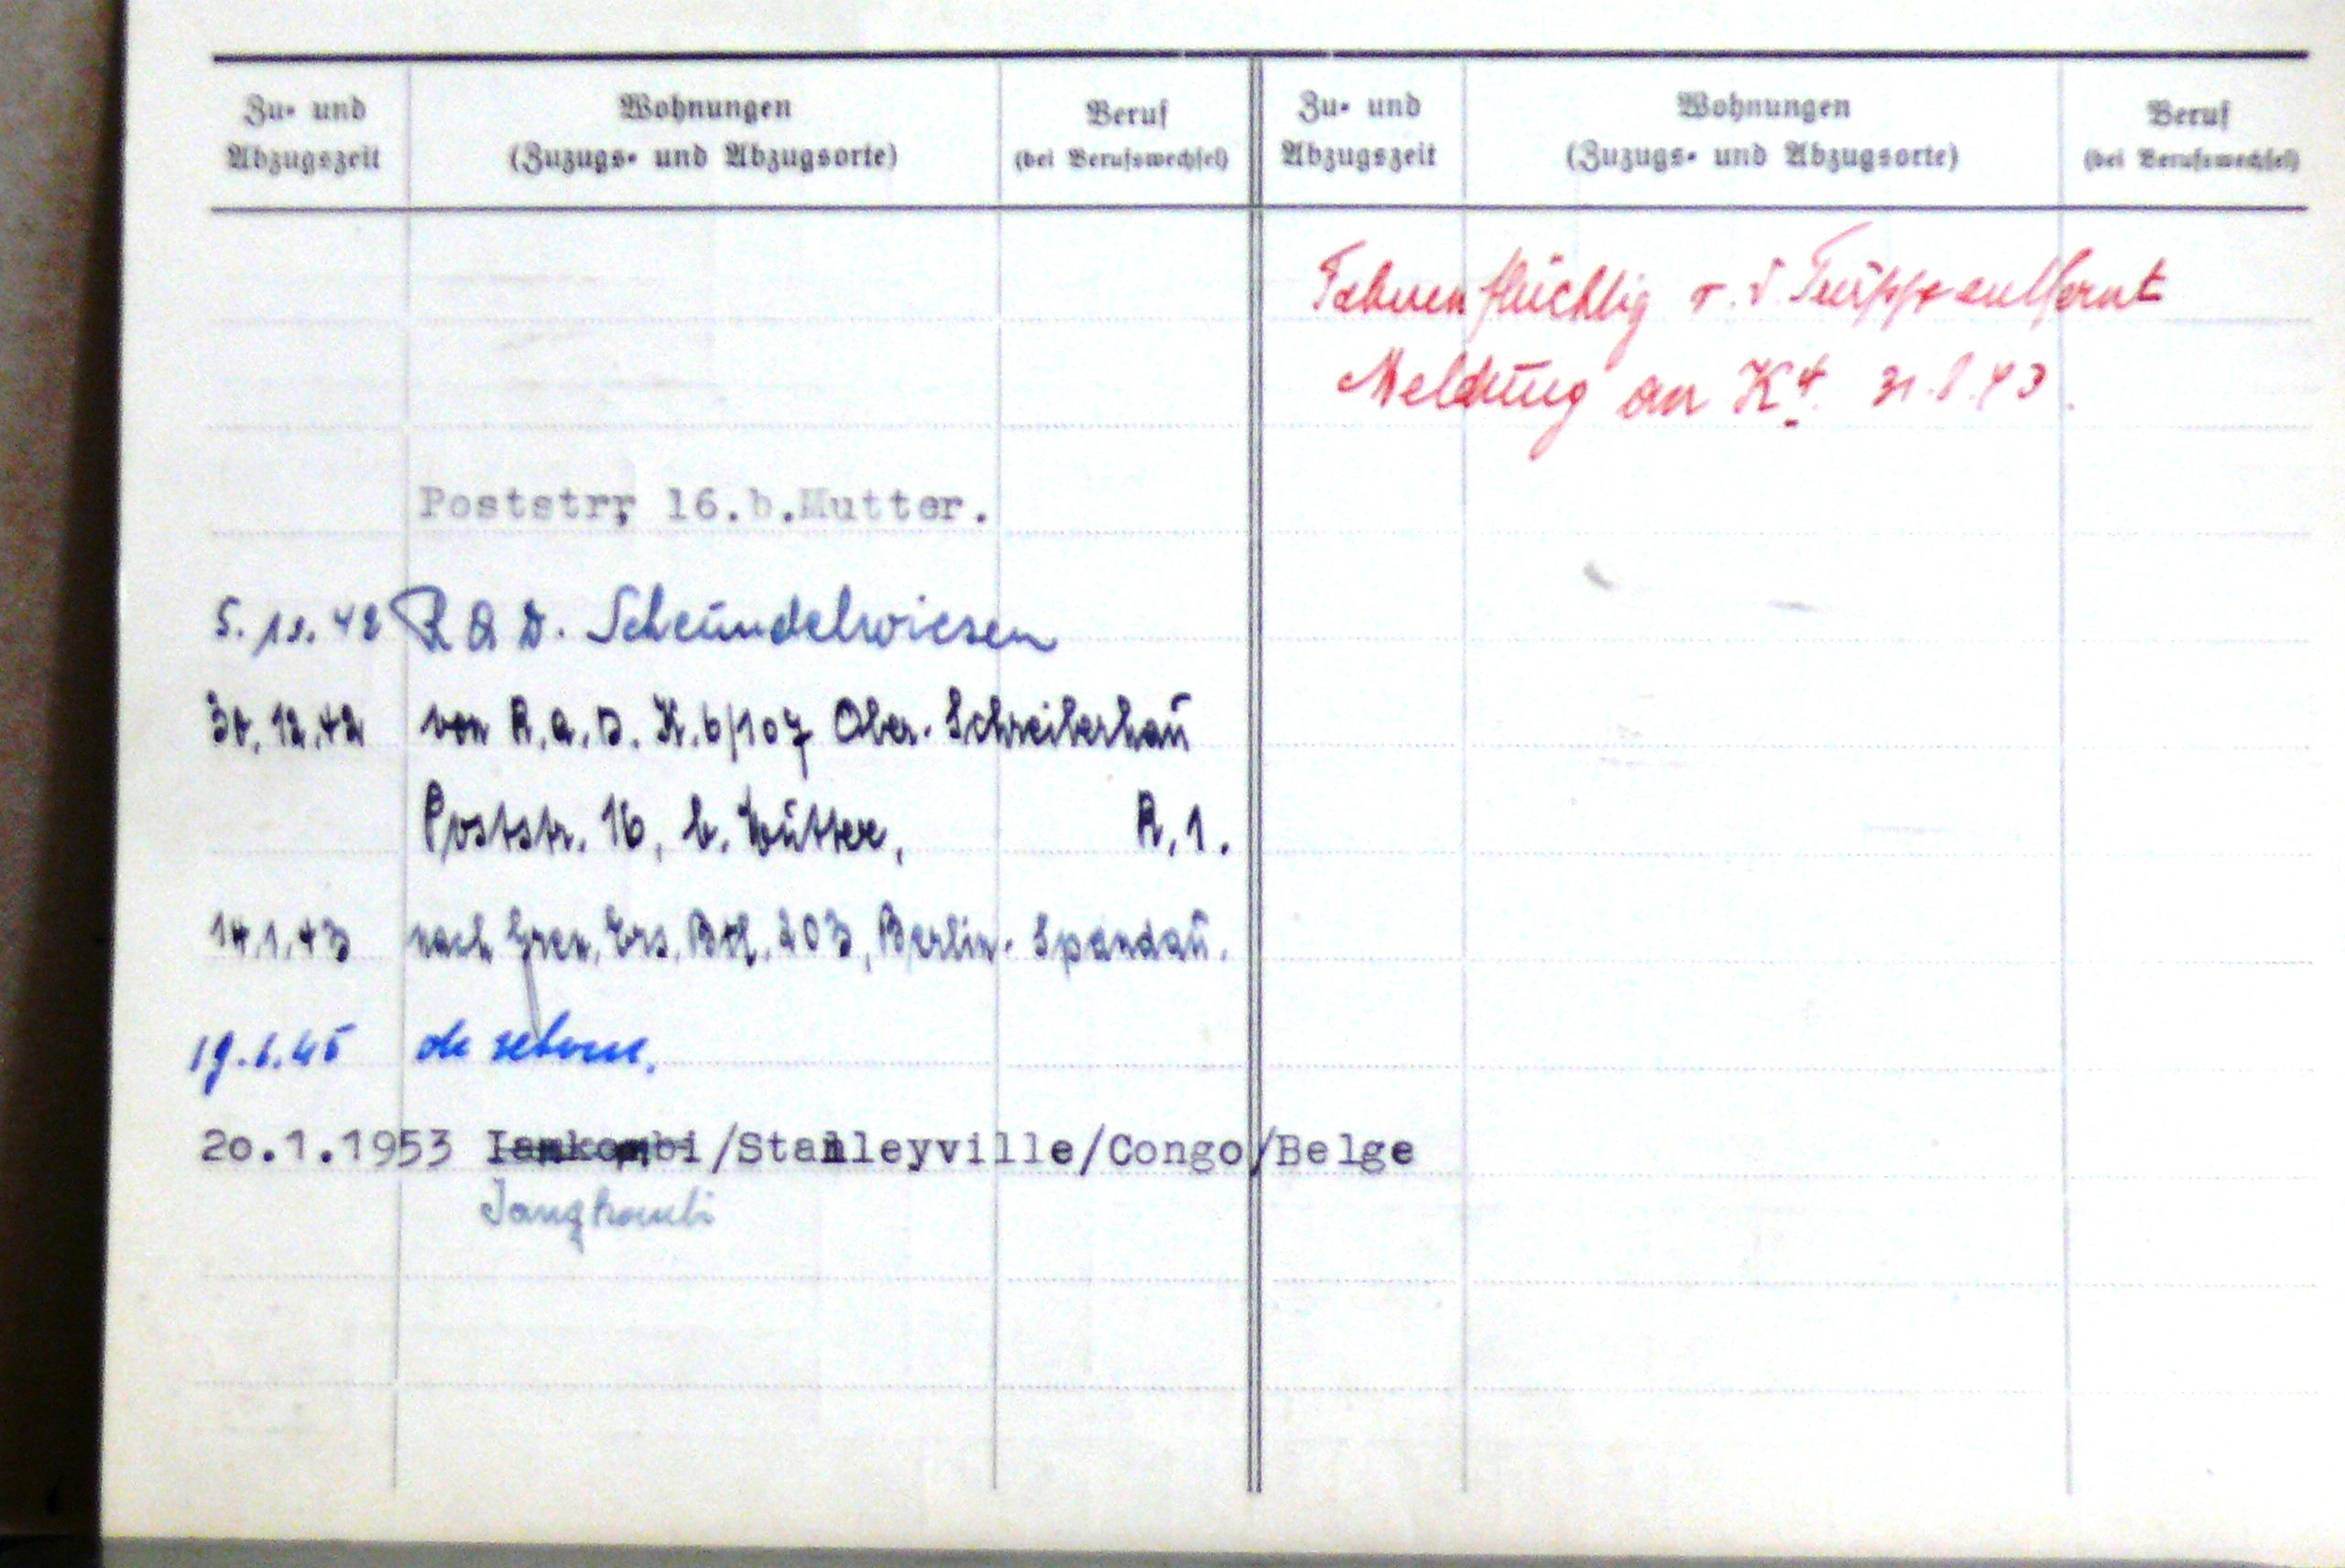 Zu- und Abzugszeit
Wohnungen (Zuzugs- und Abzugsorte)
Beruf (bei Berufswechsel)
Zu- und Abzugszeit
Wohnungen (Zuzugs- und Abzugsorte)
Beruf (bei Berufswechsel)
Fahnenflüchtig v. d. Truppe entfernt
Meldung an K4. 31.8.43.
Poststr, 16.b.Mutter.
R A D. Scheundelwiesen
30.12.42 von R.A.D. K.6/107 Ober-Schreiberhau
Poststr. 16, b. Mutter, R.1.
14.1.43 nach Gren. Ers. Btl. 203, Berlin-Spandau.
19.6.45
20.1.1953 /Stanleyville/Congo/Belge
Jangkambi